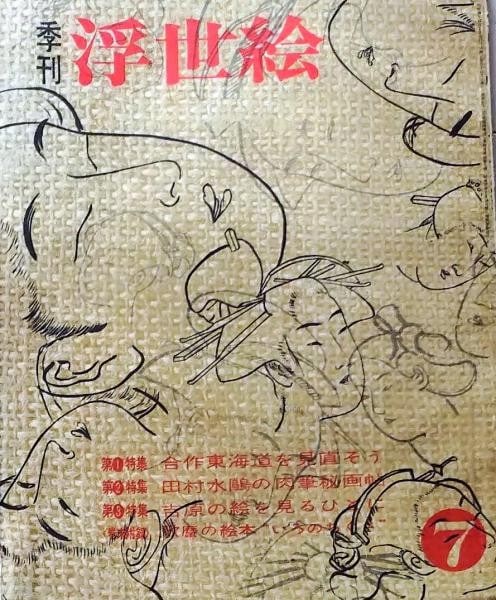 季刊 浮世絵
第1特集 合作東海道を見直そう
第2特集 田村水鷗の肉筆秘画帖
第3特集 吉原の絵を見るひ
の絵本
7